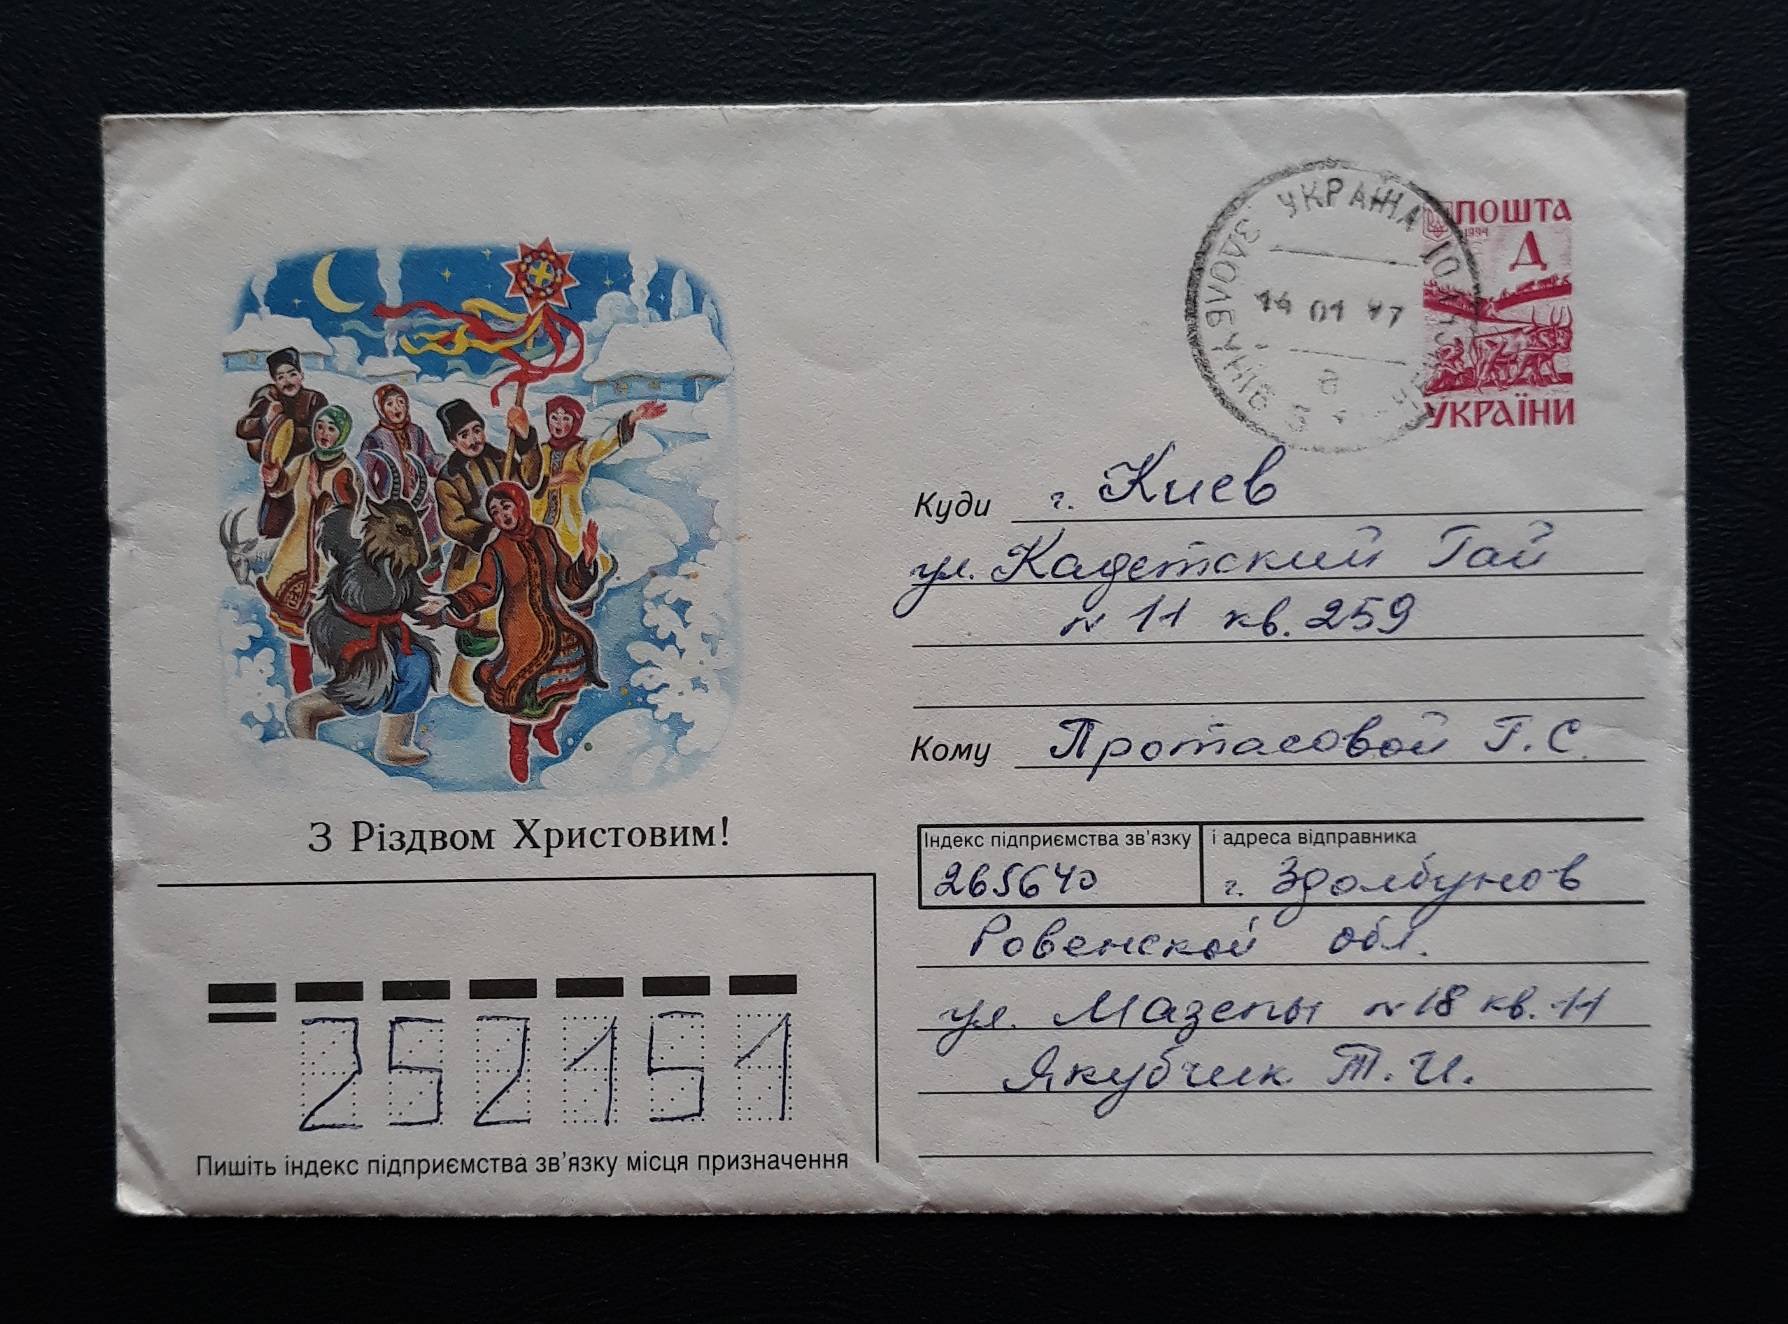 ПОШТА
1994
Д
УКРАЇНИ
УКРАЇНА
ЗДОЛБУНІВ
14 01 97
Куди г. Киев
ул. Кадетский Гай
н 11 кв. 259
Кому Протасовой Г. С.
З Різдвом Христовим!
Індекс підприємства зв'язку і адреса відправника
265640 г. Здолбунов
Ровенской обл.
ул. Мазепы н 18 кв. 11
Якубчик Т. И.
252151
Пишіть індекс підприємства зв'язку місця призначення